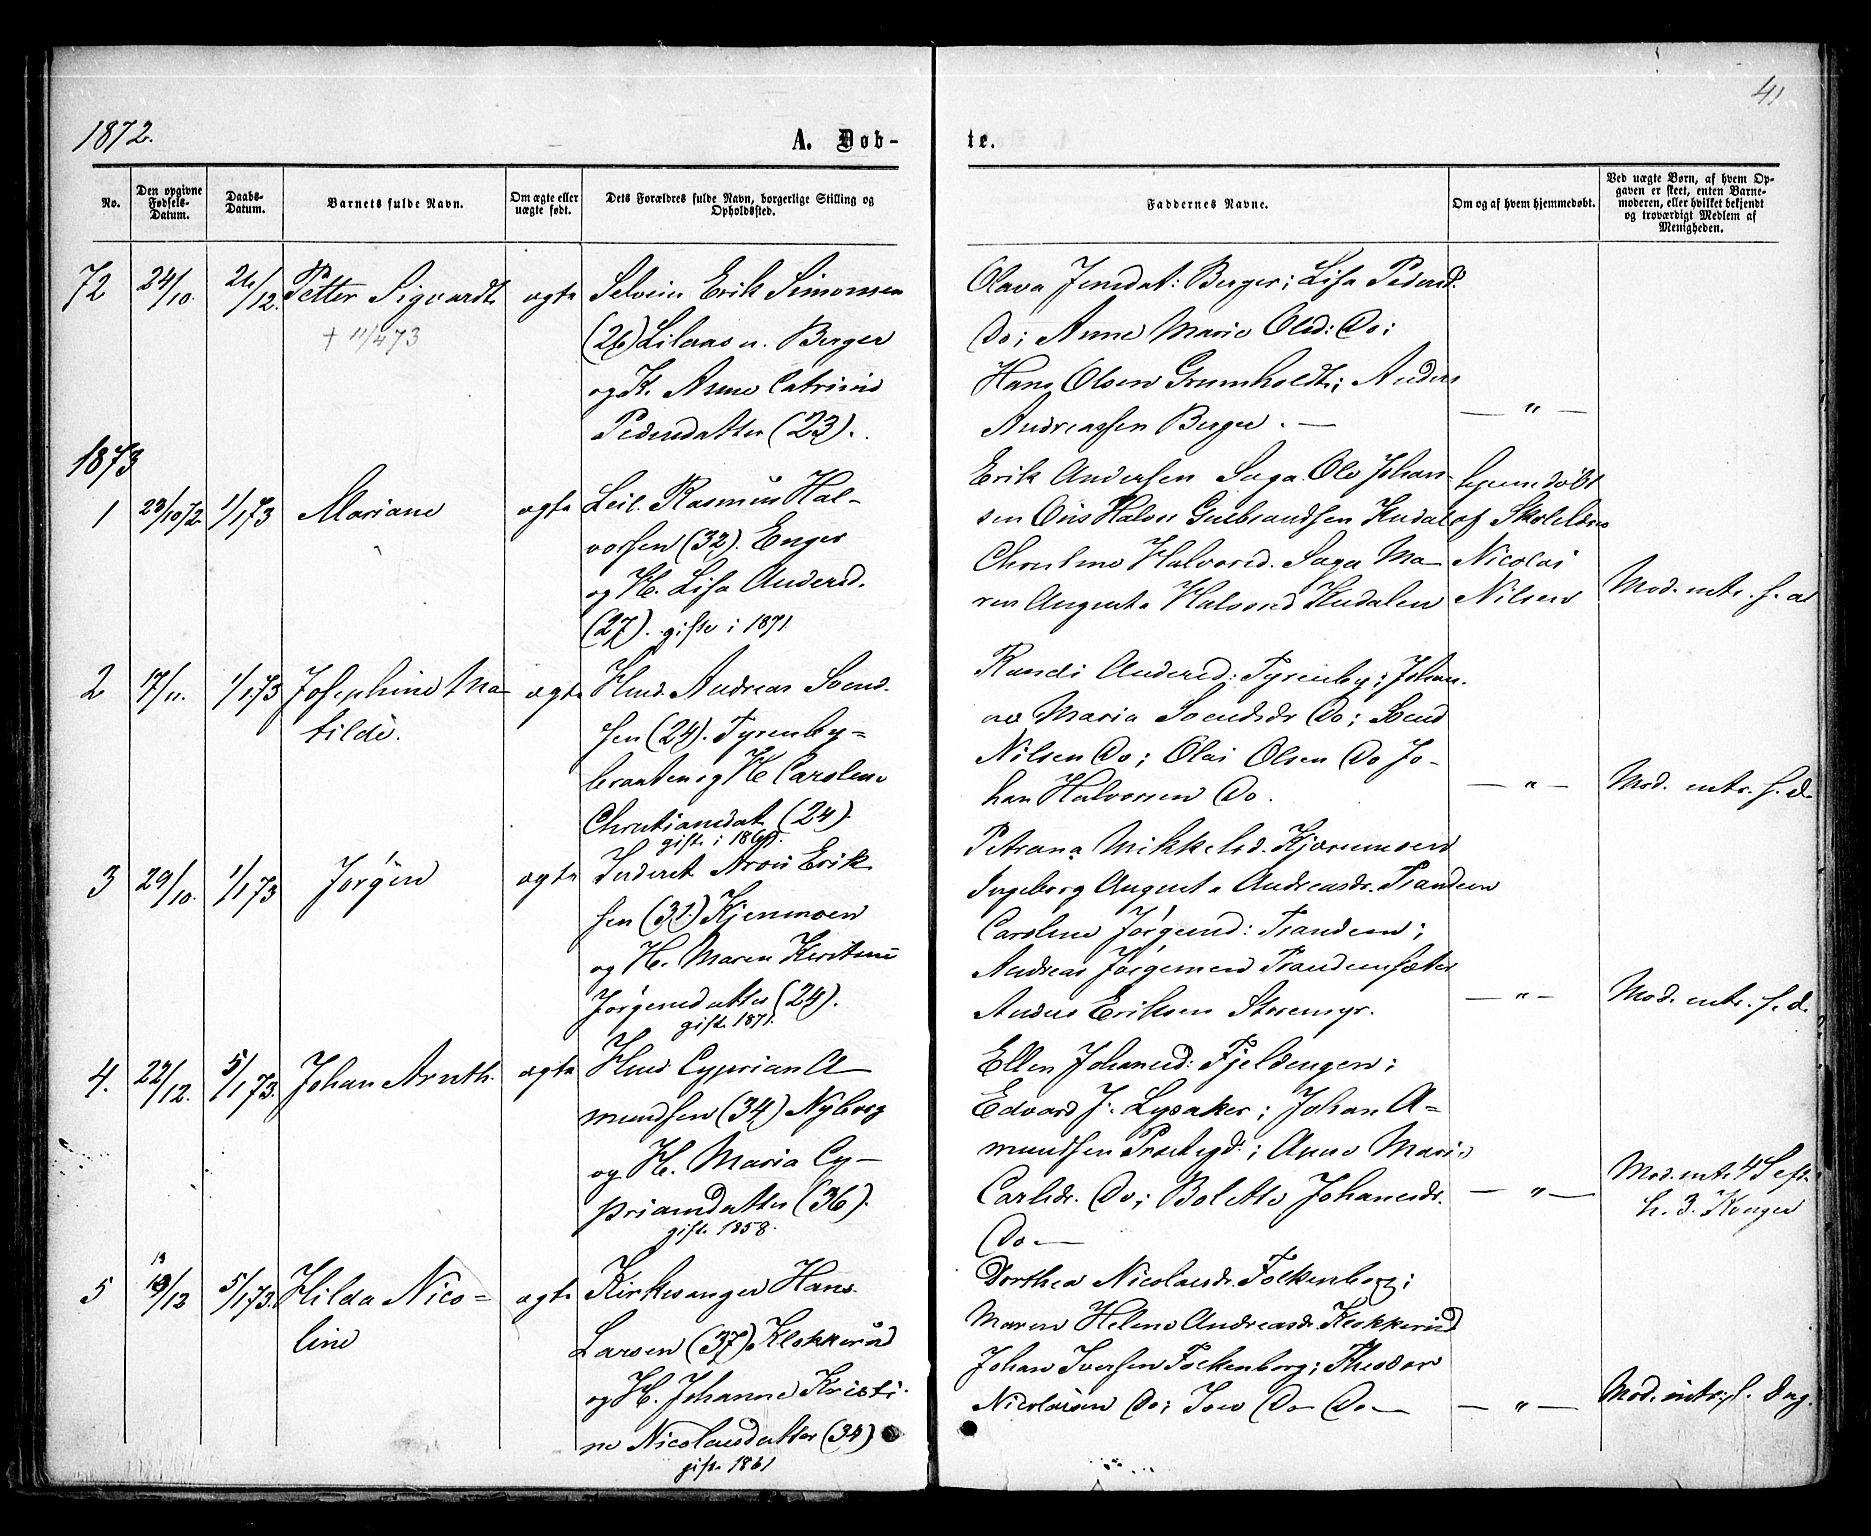 41
1872.
A. Døb-
te.
No.
Den opgivne Fødsels-Datum.
Daabs-Datum.
Barnets fulde Navn.
Om ægte eller uægte født.
Dets Forældres fulde Navn, borgerlige Stilling og Opholdssted.
Faddernes Navne.
Om og af hvem hjemmedøbt.
Ved uægte Børn, af hvem Opgaven er skeet, enten Barnemoderen, eller hvilket bekjendt og troværdigt Medlem af Menigheden.
72 24/10. 26/12. Petter Sigvardt ægte
† 11/4 73
Selveier Erik Simonsen
(26) Lileraas u. Berger
og K. Anne Catrine
Pedersdatter (23).
Olava Jensdat: Berger; Lisa Pedersd.
Do; Anne Marie Olsd: Do;
Hans Olsen Grumholdt; Anders
Andreassen Berger. — — " —
1873
1 23/10 72 1/1 73 Mariane ægte
Leil. Rasmus Hal-
vorsen (32). Enger
og H. Lisa Andersd.
(27). gifte i 1871
Erik Andersen Saga Ole Johan-
sen Ous Halvor Gulbrandsen Kudal
Halvorsd. Saga Ma-
ren Augusta Halvorsd Kudalen
hjemdøbt
af Skolelærer
Nicolai
Nilsen
Mod. intr. s. d
2 17/11. 1/1 73 Josephine Ma-
tilde. ægte
Huusm. Andreas Svend-
sen (24). Tyrenby-
braaten og H Caroline
Christiansdat. (24).
gifte i 1869.
Randi Andersd: Tyrenby; Johan-
ne Maria Svendsdr Do; Svend
Nilsen Do; Olai Olsen Do Jo-
han Halvorsen Do.
— " —
Mod. intr. s. d.
3 29/10. 1/1 73 Jørgen ægte
Inderst Aron Erik-
sen (31) Kjernmoen
og H. Maren Kirstine
Jørgensdatter (24).
gift. 1871.
Petrona Mikkelsd. Kjernmoen
Ingeborg Augusta Andreasdr. Trandem
Caroline Jørgensd: Trandem;
Andreas Jørgensen Trandemsæter
Anders Eriksen Storemyr.
— " —
Mod. intr. s. d.
4. 22/12. 5/1 73. Johan Arnth. ægte
Huusm Cyprian A-
mundsen (34) Nyborg
og H. Maria Cy-
priansdatter (36).
gift. 1858.
Ellen Johansd: Fjeldengen;
Edvard J. Lysaker; Johan A-
mundsen; Anne Marie
Carlsdr. Do; Bolette Johanesdr.
Do —
— " —
Mod. intr. 4 Sept.
h. 3. Konger
5 19/12 5/1 73. Hilda Nico-
line ægte
Kirkesanger Hans
Larsen (37) Klokkerud
og H. Johanne Kristi-
ne Nicolaisdatter (34)
gift. 1861
Dorthea Nicolaisdr. Falkenborg;
Maren Helene Andreasdr. Klokkerud
Johan Iversen Falkenborg; Theodor
Nicolaisen Do; Iver Do Do —
— " —
Mod. intr. s. Dag.